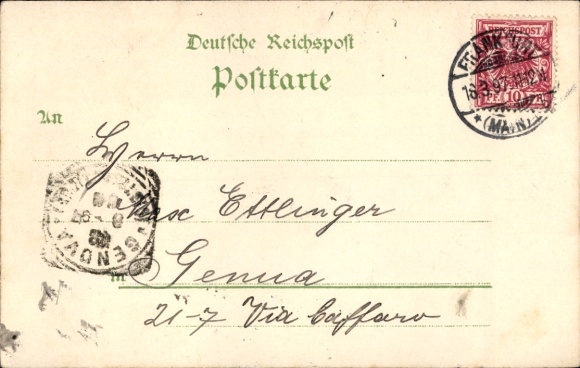 Deutsche Reichspost
Postkarte
FRANKFURT
16.3.97.11-12
* (MAIN)
REICHSPOST
PF 10 PF
An
Herrn
Max Ettlinger
GENOVA
in Genua
21-7 Via Caffaro